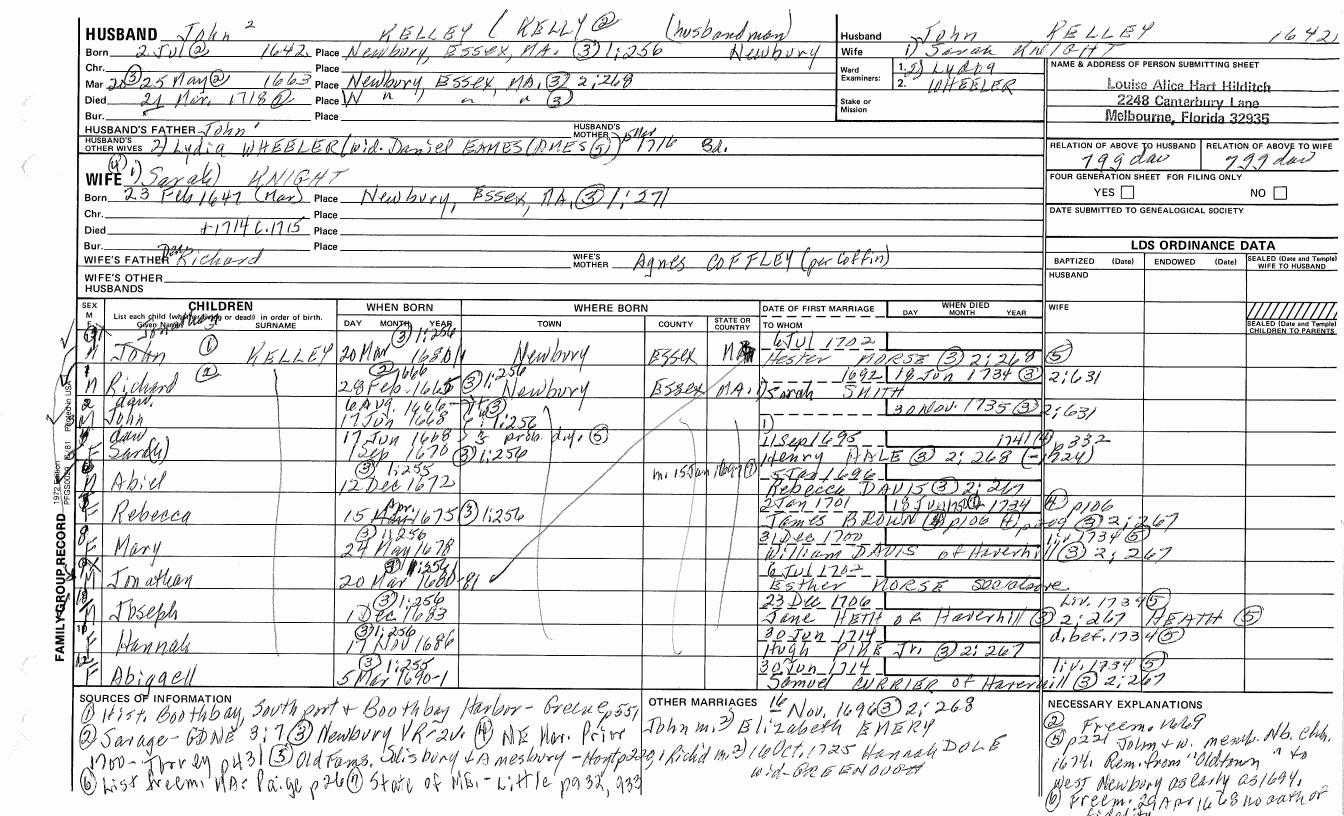 HUSBAND John 2 KELLEY ( KELLY ② (husbandman)
Born 2 Jul ② 1642 Place Newbury, Essex, MA. ③ 1:256 Newbury
Chr. Place
Mar ③ 25 May ② 1663 Place Newbury, Essex, MA. ③ 2:268
Died 21 Mar. 1718 Place " " " ③
Bur. Place
HUSBAND'S FATHER John 1 HUSBAND'S MOTHER
HUSBAND'S OTHER WIVES 2) Lydia WHEELER (wid. Daniel EAMES (AMES ⑤) 15 Mar 1716
Husband John KELLEY 1642
Wife 1) Sarah KNIGHT
Ward Examiners: 1. 2) Lydia
2. WHEELER
Stake or Mission
NAME & ADDRESS OF PERSON SUBMITTING SHEET
Louise Alice Hart Hilditch
2248 Canterbury Lane
Melbourne, Florida 32935
RELATION OF ABOVE TO HUSBAND RELATION OF ABOVE TO WIFE
FOUR GENERATION SHEET FOR FILING ONLY
YES NO
DATE SUBMITTED TO GENEALOGICAL SOCIETY
WIFE ④ 1) Sarah) KNIGHT
Born 23 Feb 1647 (Mar) Place Newbury, Essex, MA. ③ 1:271
Chr. Place
Died +1714 c.1715 Place
Bur. Place
WIFE'S FATHER Dea. Richard WIFE'S MOTHER Agnes COFFLEY (per Coffin)
WIFE'S OTHER HUSBANDS
LDS ORDINANCE DATA
BAPTIZED (Date) ENDOWED (Date) SEALED (Date and Temple) WIFE TO HUSBAND
HUSBAND
WIFE
SEALED (Date and Temple) CHILDREN TO PARENTS
SEX M F
CHILDREN
List each child (whether living or dead) in order of birth.
Given Names SURNAME
WHEN BORN
DAY MONTH YEAR
WHERE BORN
TOWN COUNTY STATE OR COUNTRY
DATE OF FIRST MARRIAGE
TO WHOM
WHEN DIED
DAY MONTH YEAR
Jonathan 3 ③ 1:256 6 Jul 1702
M John ① KELLEY 20 Mar 1680/1 Newbury Essex MA Hester MORSE ③ 2:268 ⑤
1 ② 1666 ③ 1:256 1692 18 Jun 1734 ③ 2:631
M Richard ② 28 Feb. 1665 Newbury Essex MA. 1) Sarah SMITH
2 dau. 6 Aug. 1666 ③ 30 Nov. 1735 ③ 2:631
M John 17 Jun 1668 1:256 1)
dau 17 Jun 1668 prob. d.y. ⑤ 11 Sep 1695 1741 p332
F Sarah) 1 Sep 1670 ③ 1:256 Henry HALE ③ 2:268 (-1724)
③ 1:255 m. 15 Jan 1696 5 Jan 1696
M Abiel 12 Dec 1672 Rebecca DAVIS ③ 2:267
Apr. 2 Jan 1701 1734 ④ p106
F Rebecca 15 Mar 1675 ③ 1:256 James BROWN ④ p106 ③ 2:267
8 ③ 1:256 31 Dec 1700 liv. 1734 ⑤
F Mary 24 May 1678 William DAVIS of Haverhill ③ 2:267
③ 1:256 6 Jul 1702
M Jonathan 20 Mar 1680-81 Esther MORSE see above
10 ③ 1:256 23 Dec 1706 Liv. 1734 ⑤
M Joseph 1 Dec 1683 Jane HETH of Haverhill ③ 2:267 HEATH ⑤
③ 1:256 30 Jun 1714 d. bef. 1734 ⑤
F Hannah 17 Nov 1686 Hugh PINE Jr. ③ 2:267
12 ③ 1:255 30 Jun 1714 liv. 1734 ⑤
F Abigaell 5 Mar 1690-1 Samuel CURRIER of Haverhill ③ 2:267
FAMILY GROUP RECORD 1972 Edition Printed in USA
SOURCES OF INFORMATION
① Hist. Boothbay, Southport & Boothbay Harbor - Greene p551
② Savage - GDNE 3:7 ③ Newbury VR - 2v. ④ NE Mar. Prior
1700 - Torrey p431 ⑤ Old Fams. Salisbury & Amesbury - Hoyt p220,
⑥ List Freem. MA: Paige p26 ⑦ State of ME. - Little p932, 933
OTHER MARRIAGES 16 Nov. 1696 ③ 2:268
John m. 2) Elizabeth EMERY
Rich'd m. 2) 16 Oct. 1725 Hannah DOLE
wid. GREENOUGH
NECESSARY EXPLANATIONS
② Freem. 1669
⑤ p221 John & w. memb. Nb. chh.
1674. Rem. from "Oldtown" to
West Newbury as early as 1694.
⑥ Freem. 29 Apr 1668 no oath of